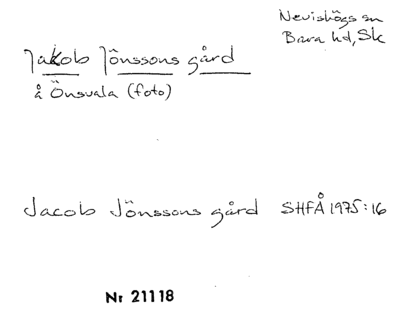 Nevishögs sn
Bara hd, Sk
Jakob Jönssons gård
å Önsvala (foto)
Jacob Jönssons gård SHFÅ 1975:16
Nr 21118